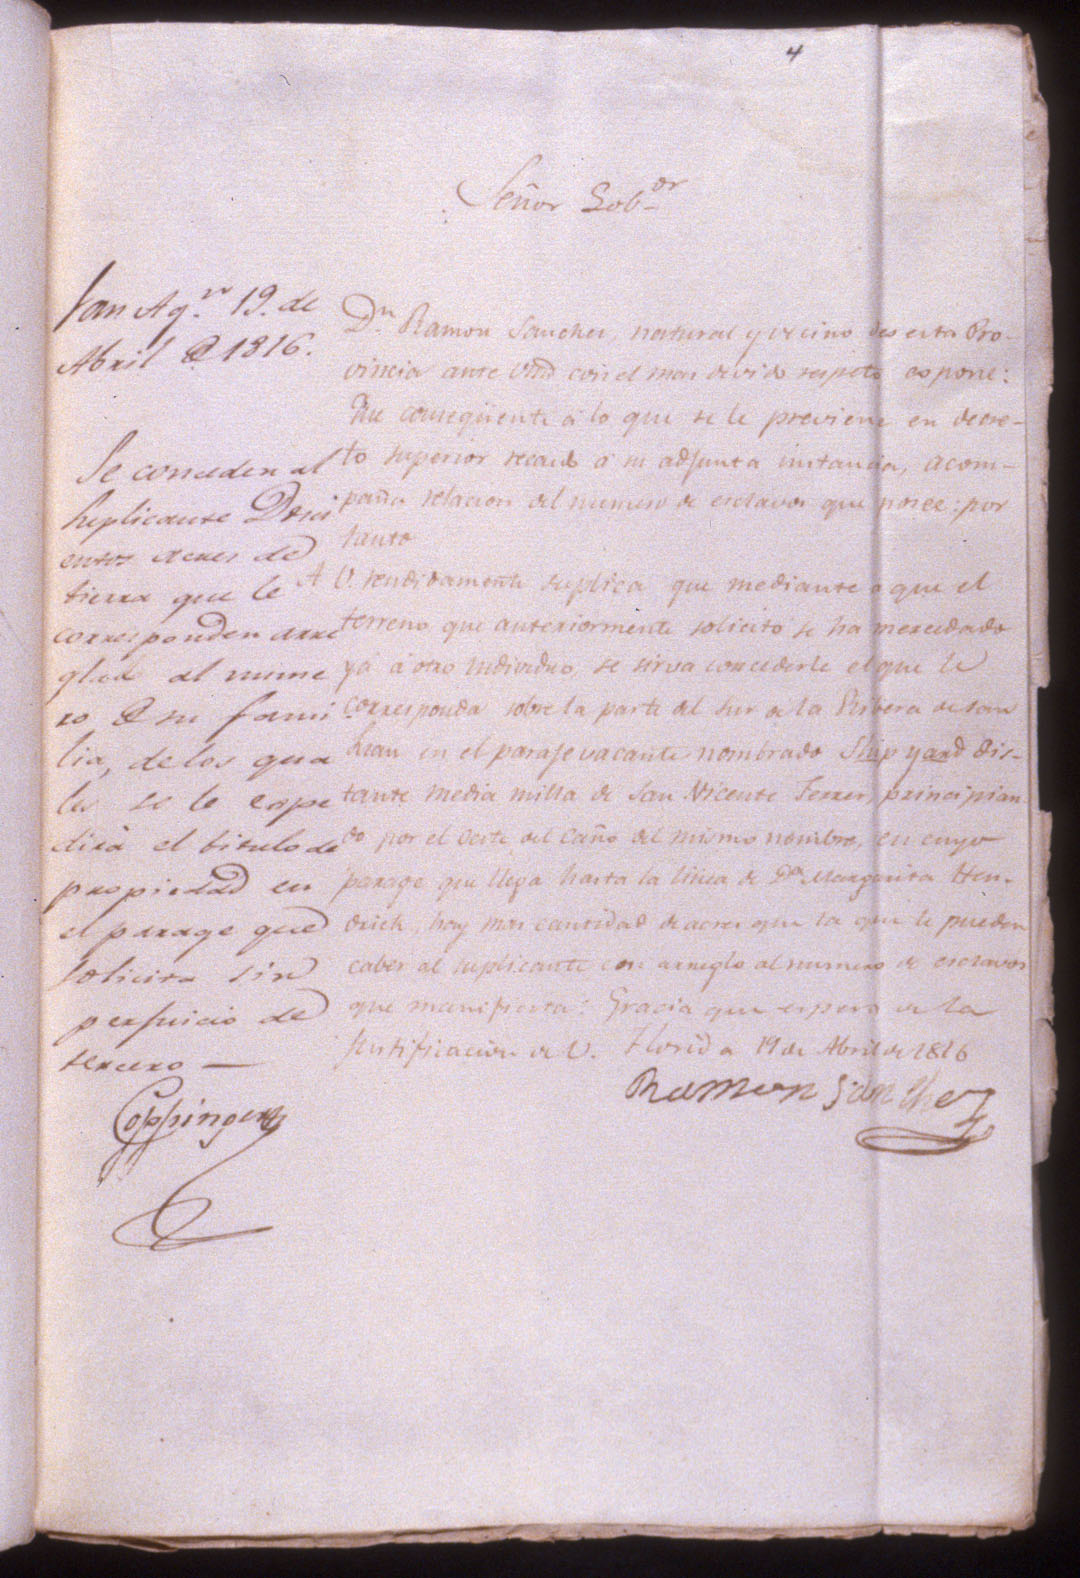 4
Señor Gob.or
San Ag.n 19. de
Abril de 1816.
Se conceden al
suplicante Dosci
entos acres de
tierra que le
corresponden arre
glado al nume
ro de su fami
lia, de los qua
les se le expe
dirá el titulo de
propiedad en
el parage que
solicita sin
perjuicio de
tercero —
Coppinger
Dn Ramon Sanchez, natural y vecino de esta Pro-
vincia ante Vmd con el mas devido respeto espone:
Que conseqüente á lo que se le previene en decre-
to superior recaido á su adjunta instancia, acom-
paña relacion del numero de esclavos que posee: por
tanto
A V. rendidamente suplica que mediante a que el
terreno que anteriormente solicitó se ha mercedado
yá á otro individuo, se sirva concederle el que le
corresponda sobre la parte del sur de la Ribera de San
Juan en el paraje vacante nombrado Ship yard dis-
tante media milla de San Vicente Ferrer, principian-
do por el oeste del caño del mismo nombre, en cuyo
parage que llega hasta la linea de Da Margarita Hen-
drich, hay mas cantidad de acres que la que le pueden
caber al suplicante con arreglo al numero de esclavos
que manifiesta: Gracia que espera de la
justificacion de V. Florida 19 de Abril de 1816
Ramon Sanchez